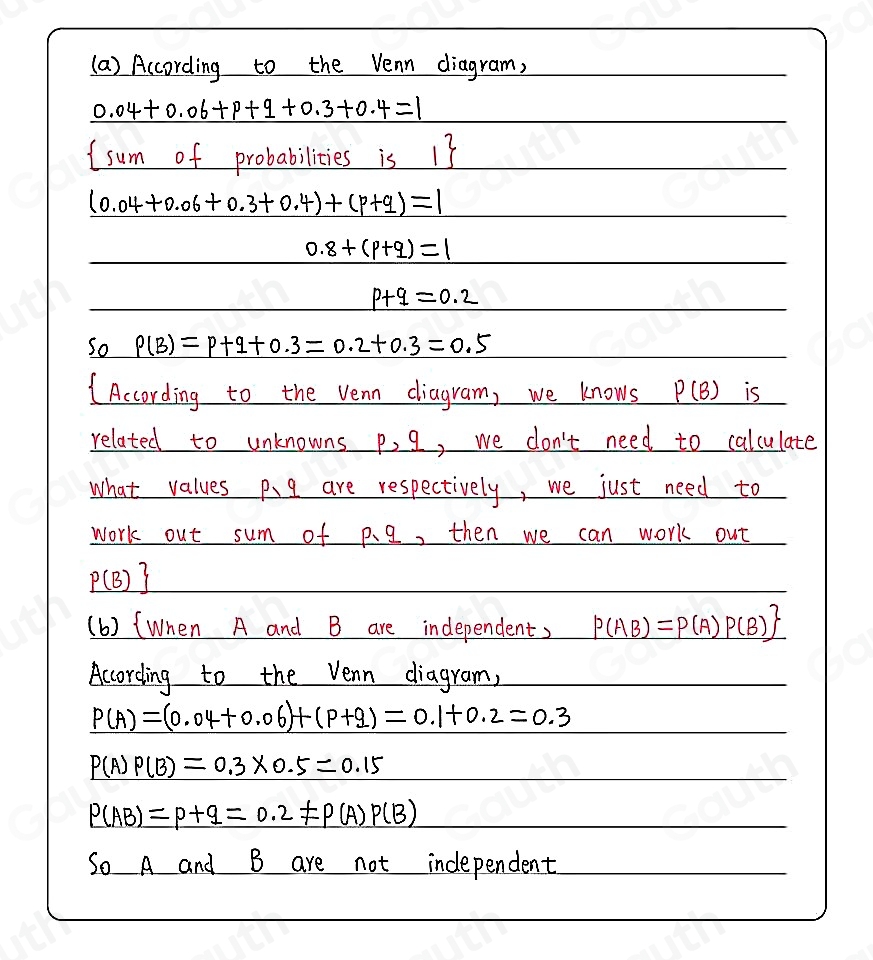 (a) According to the Venn diagram,
0.04+0.06+p+q+0.3+0.4=1
{sum of probabilities is 1}
(0.04+0.06+0.3+0.4)+(p+q)=1
0.8+(p+q)=1
p+q=0.2
So P(B)=p+q+0.3=0.2+0.3=0.5
{According to the Venn diagram, we knows P(B) is
related to unknowns p, q, we don't need to calculate
what values p、q are respectively, we just need to
work out sum of p、q, then we can work out
P(B)}
(b) {When A and B are independent, P(AB)=P(A)P(B)}
According to the Venn diagram,
P(A)=(0.04+0.06)+(p+q)=0.1+0.2=0.3
P(A)P(B)=0.3×0.5=0.15
P(AB)=p+q=0.2≠P(A)P(B)
So A and B are not independent